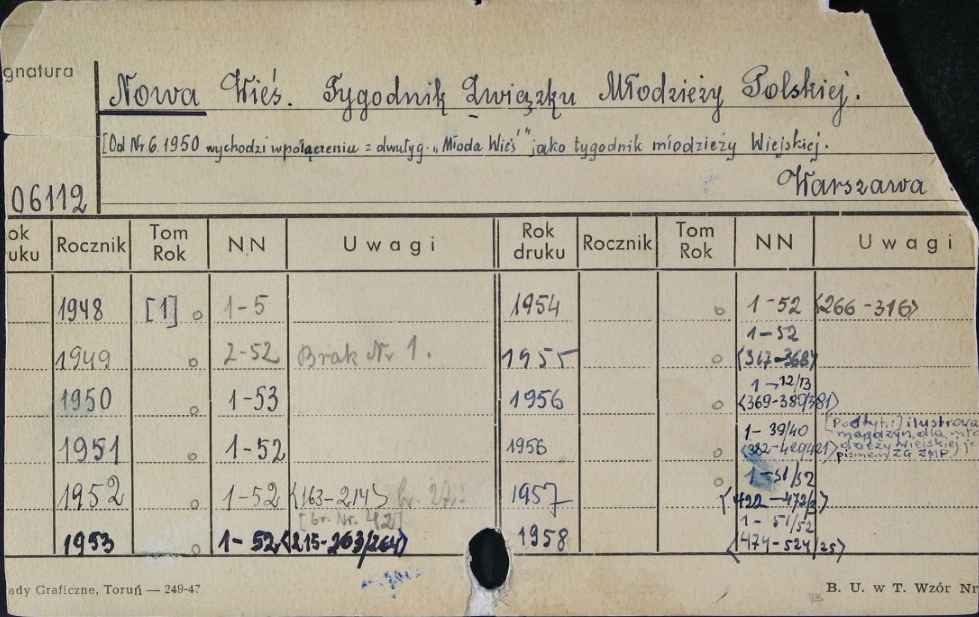 gnatura
Nowa Wieś. Tygodnik Związku Młodzieży Polskiej.
[Od Nr 6.1950 wychodzi w połączeniu z dwutyg. „Młoda Wieś" jako tygodnik młodzieży Wiejskiej.
06112 Warszawa
ok uku Rocznik Tom Rok NN Uwagi Rok druku Rocznik Tom Rok NN Uwagi
1948 [1] o 1-5
1949 o 2-52 Brak Nr 1.
1950 o 1-53
1951 o 1-52
1952 o 1-52 <163-214>
[br. Nr. 42]
1953 o 1-52 <215-263/264>
1954 o 1-52 <266-316>
1955 o 1-52
<317-368>
1956 o 1-12/13
<369-380/381>
1956 o 1-39/40
<382-420/421> [Podtyt:] ilustrowa
magazyn dla mło
dzieży wiejskiej
pismem ZG ZMP
1957 o 1-51/52
<422-472/3>
1958 1-51/52
<474-524/25>
ady Graficzne, Toruń — 249-47
B. U. w T. Wzór Nr